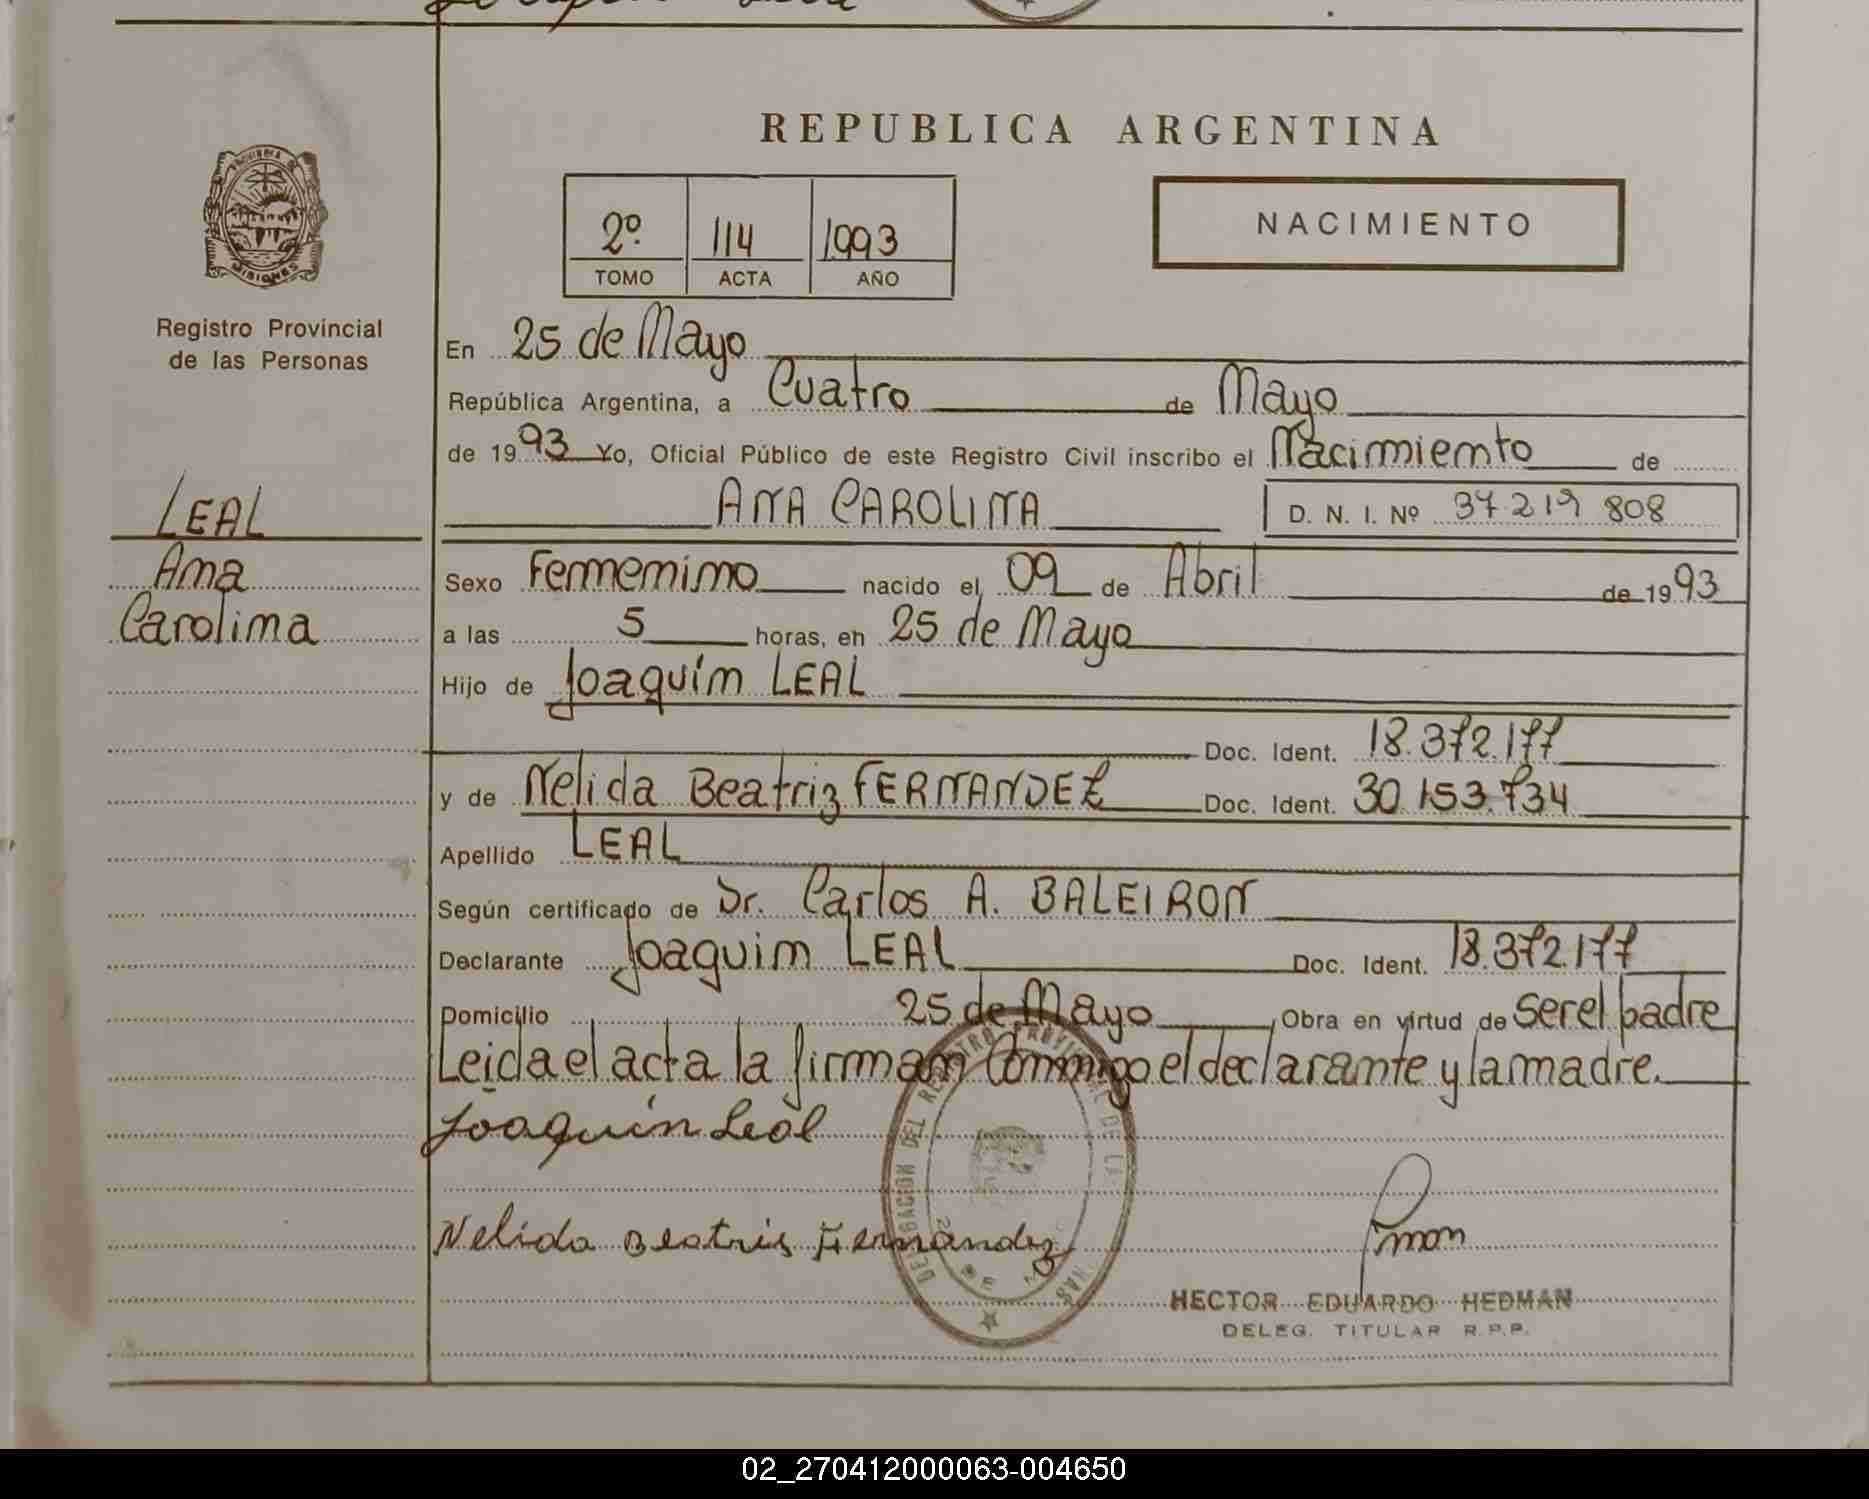 REPUBLICA ARGENTINA
2º 114 1993
TOMO ACTA AÑO
NACIMIENTO
PROVINCIA DE MISIONES
Registro Provincial
de las Personas
LEAL
Ana
Carolina
En 25 de Mayo
República Argentina, a Cuatro de Mayo
de 1993 Yo, Oficial Público de este Registro Civil inscribo el Nacimiento de
ANA CAROLINA D. N. I. Nº 37 219 808
Sexo Femenino nacido el 09 de Abril de 1993
a las 5 horas, en 25 de Mayo
Hijo de Joaquín LEAL
Doc. Ident. 18.372.177
y de Nelida Beatriz FERNANDEZ Doc. Ident. 30 153.734
Apellido LEAL
Según certificado de Dr. Carlos A. BALEIRON
Declarante Joaquin LEAL Doc. Ident. 18.372.177
Domicilio 25 de Mayo, Obra en virtud de ser el padre
Leida el acta la firman Conmigo el declarante y la madre.
Joaquín Leal
Nelida Beatris Fernandez
DELEGACION DEL REGISTRO PROVINCIAL DE LAS
HECTOR EDUARDO HEDMAN
DELEG. TITULAR R.P.P.
02_270412000063-004650